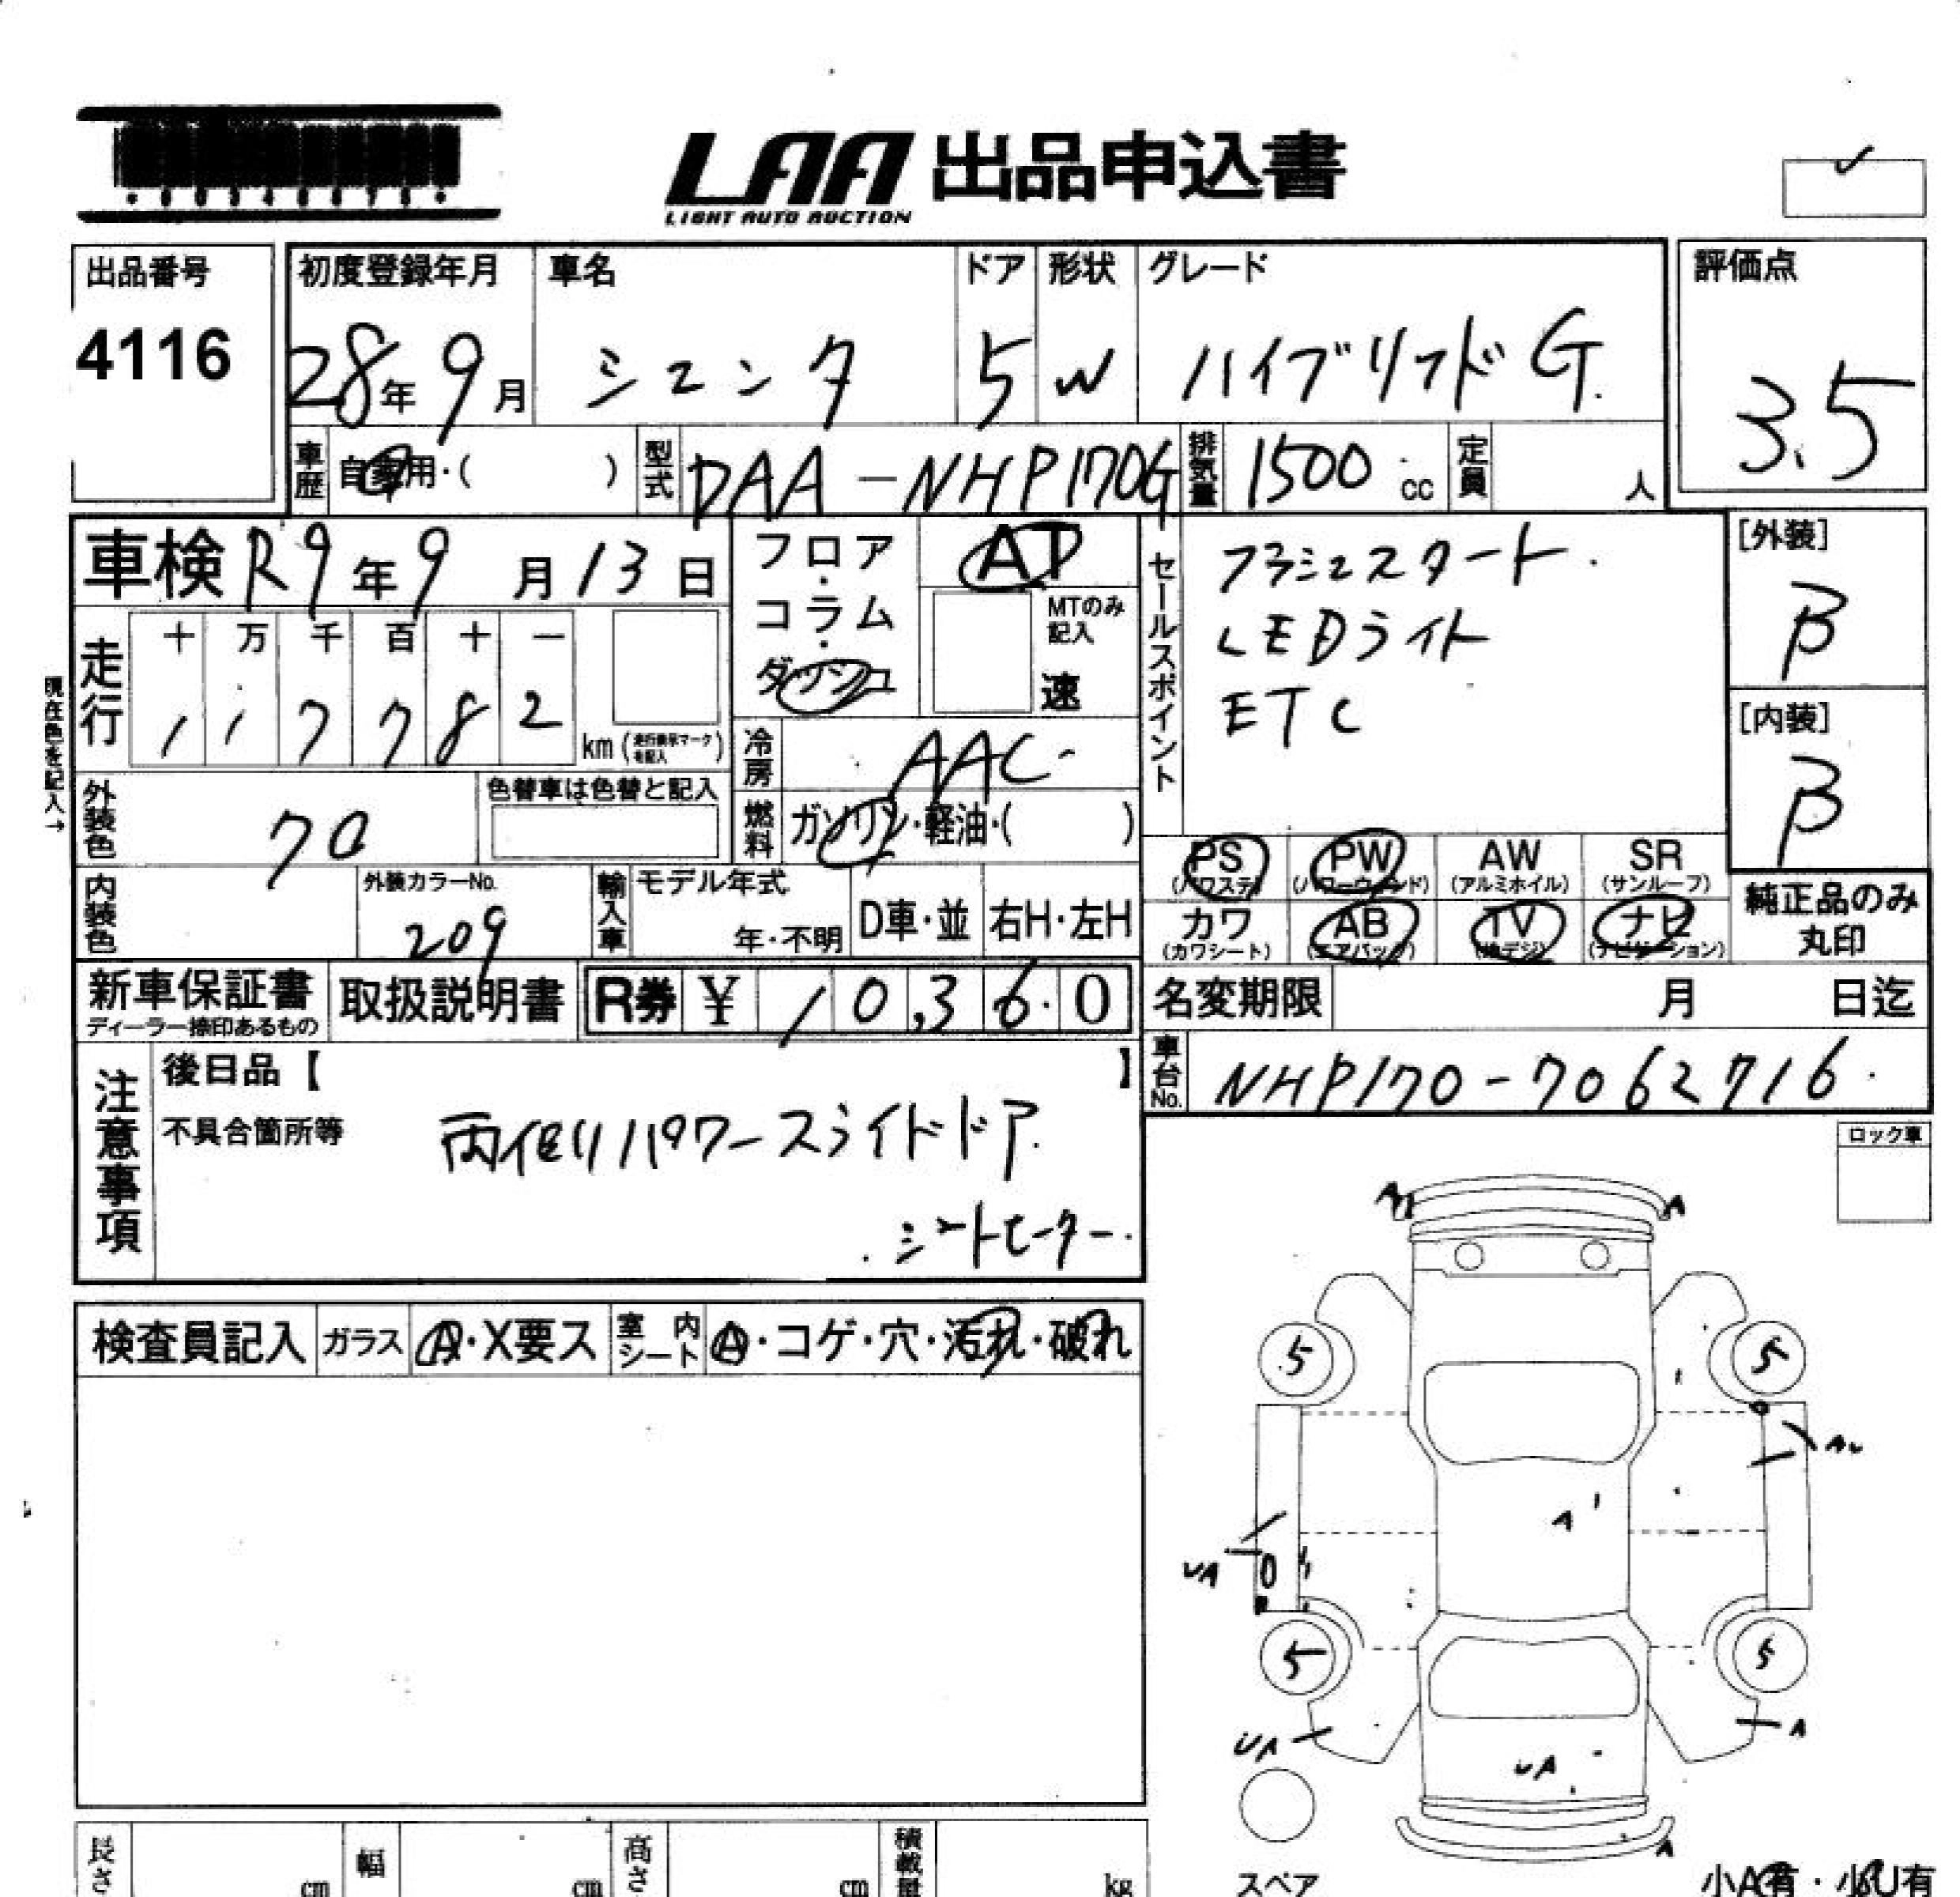 LAA 出品申込書
LIGHT AUTO AUCTION
出品番号
4116
初度登録年月
28年9月
車名
シエンタ
ドア
5
形状
W
グレード
ハイブリッドG.
評価点
3.5
車歴
自家用・(　　)
型式
DAA-NHP170G
排気量
1500 cc
定員
人
車検 R9年9月13日
フロア・コラム・ダッシュ
AT
MTのみ記入
速
セールスポイント
プッシュスタート.
LEDライト
ETC
[外装]
B
[内装]
B
現在色を記入→
走行
十 万 千 百 十 一
1 1 7 7 8 2
km (走行表示マークを記入)
冷房
AAC
燃料
ガソリン・軽油・(　　)
外装色
色替車は色替と記入
内装色
外装カラーNo.
209
輸入車
モデル年式
年・不明
D車・並
右H・左H
PS (パワステ)
PW (パワーウィンド)
AW (アルミホイル)
SR (サンルーフ)
カワ (カワシート)
AB (エアバッグ)
TV (地デジ)
ナビ (ナビゲーション)
純正品のみ丸印
新車保証書
ディーラー捺印あるもの
取扱説明書
R券 ¥ 10,360
名変期限 月 日迄
車台No.
NHP170-7062716
注意事項
後日品【　　】
不具合箇所等
両側パワースライドドア.
シートヒーター.
ロック車
検査員記入
ガラス
A・X要ス
室内シート
A・コゲ・穴・汚れ・破れ
A
A
5
5
A
UA
5
5
UA
A
UA
A
スペア
長さ cm
幅 cm
高さ cm
積載量 kg
小A有・小U有